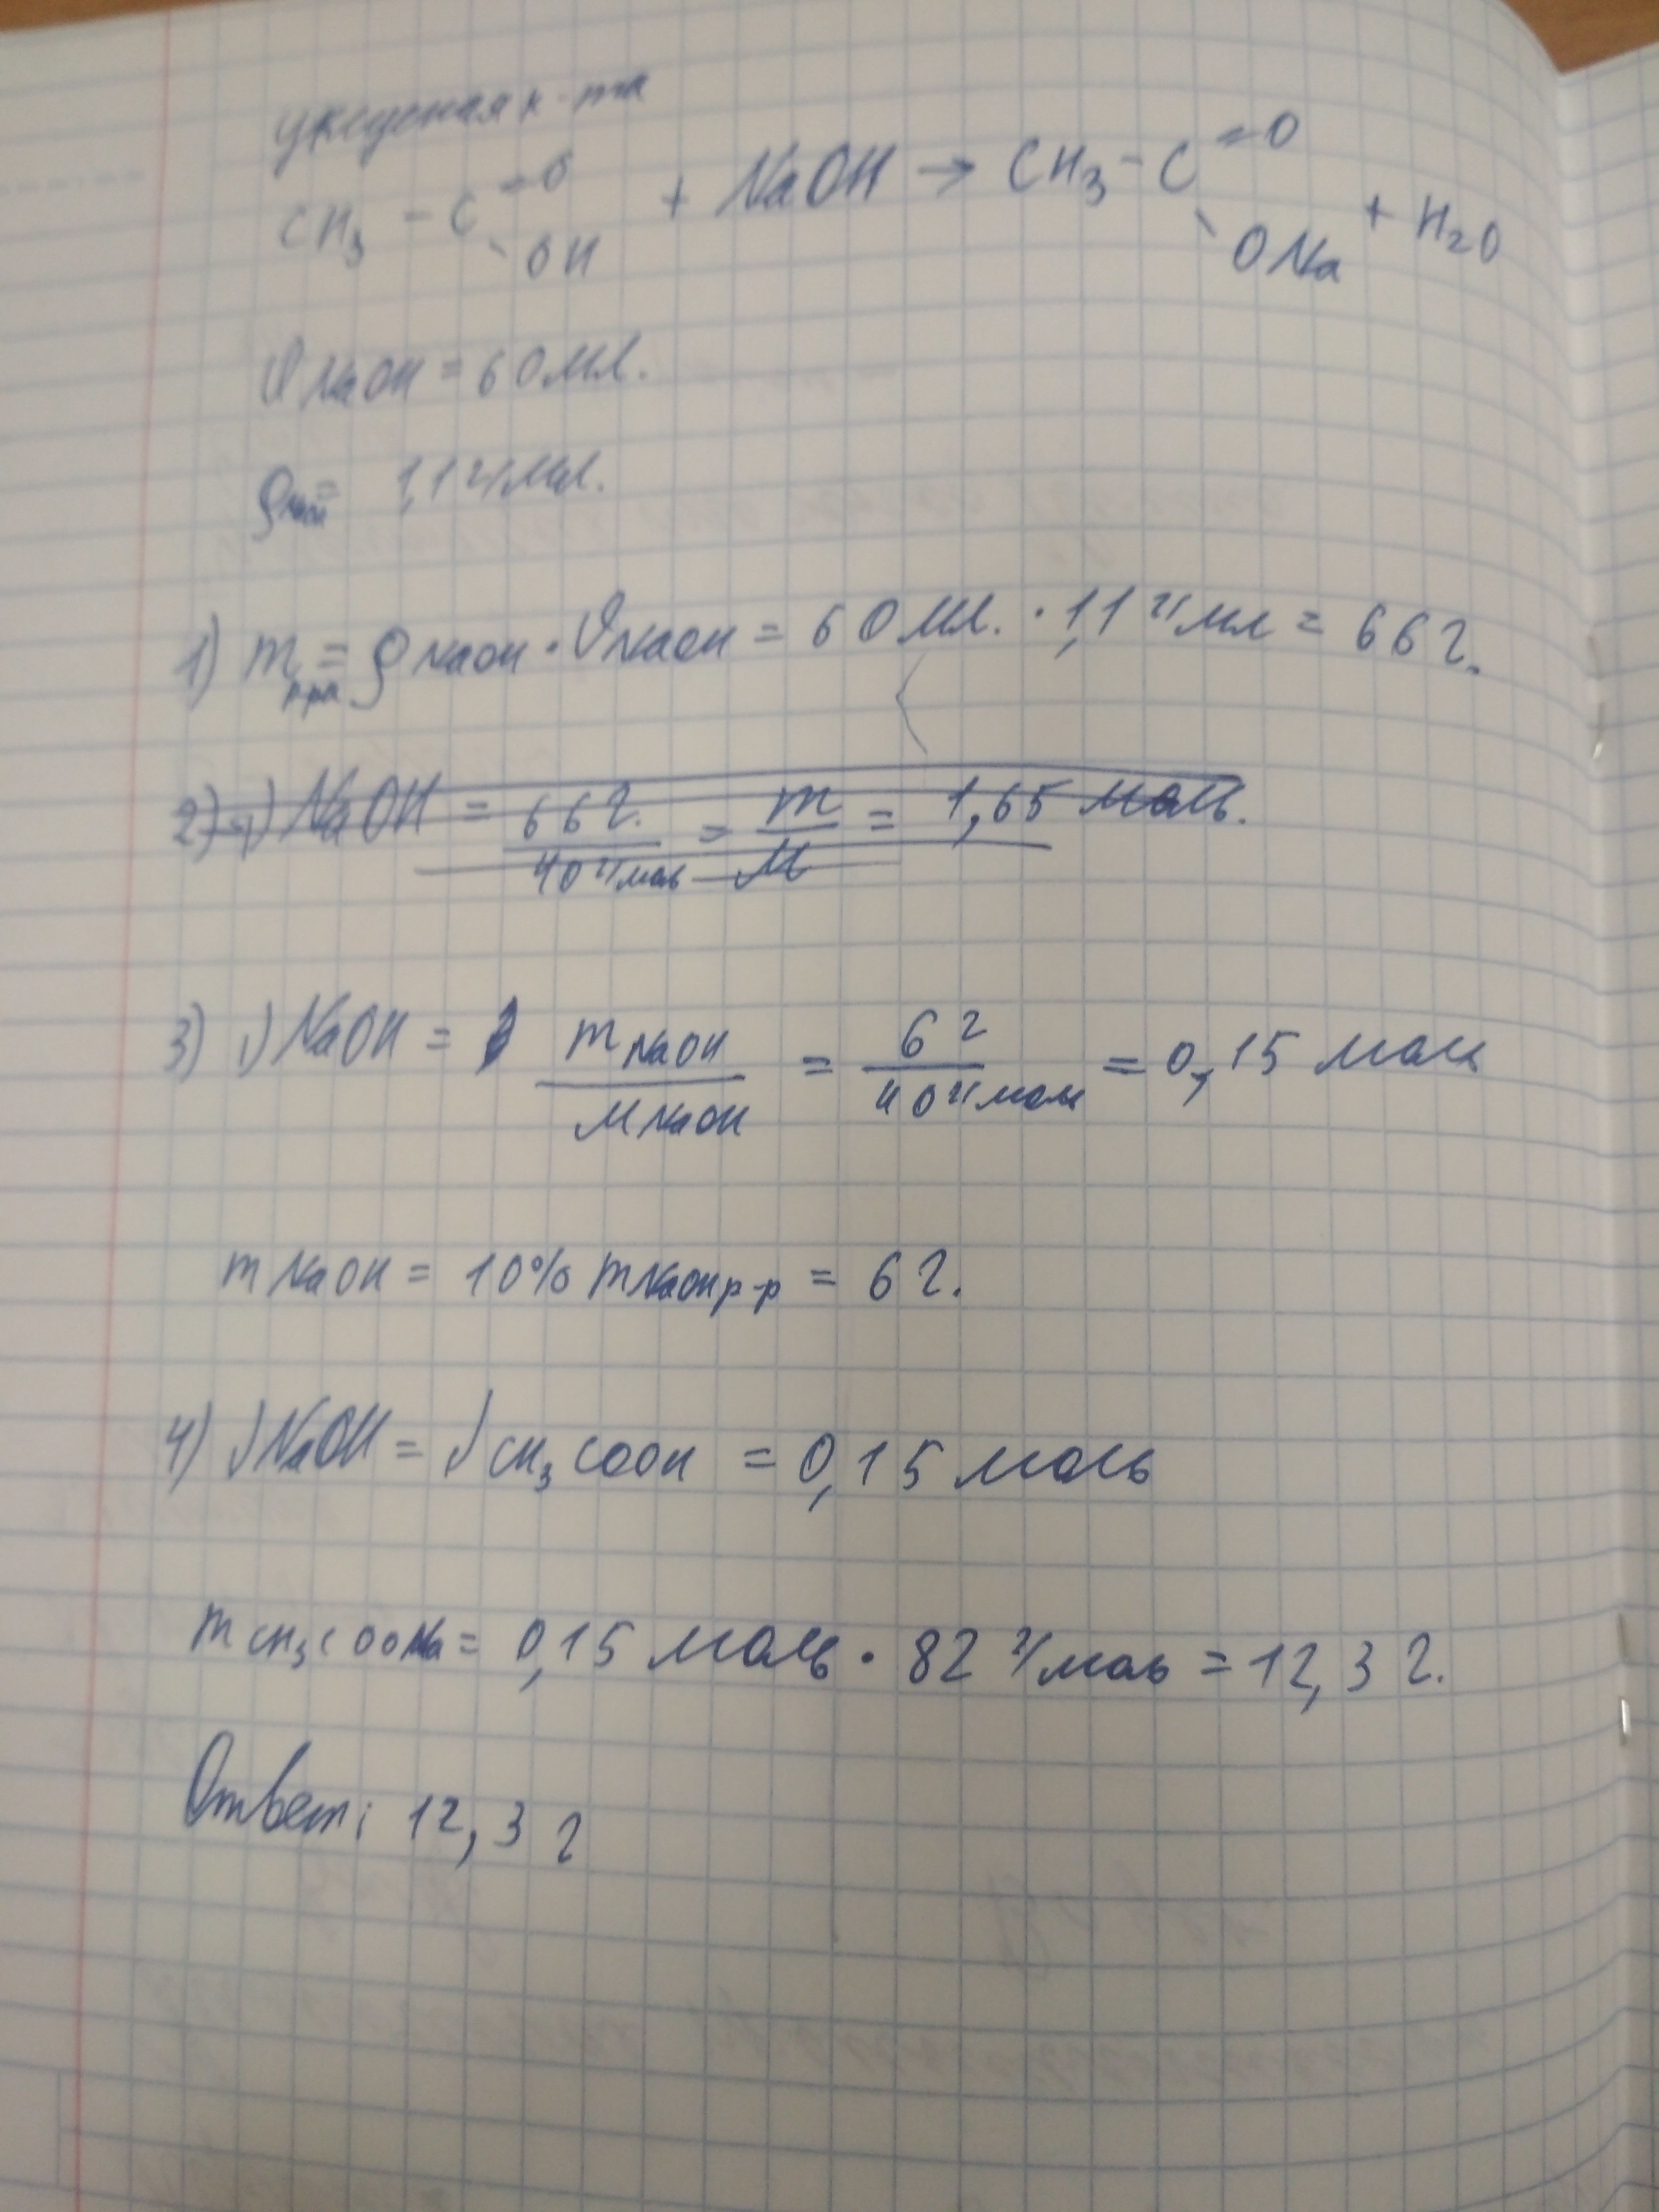 уксусная к-та
CH₃ - C =O - OH + NaOH → CH₃ - C =O - ONa + H₂O
V NaOH = 60 мл.
ρ NaOH = 1,1 г/мл.
1) m р-ра = ρ NaOH · V NaOH = 60 мл. · 1,1 г/мл = 66 г.
2) ν) NaOH = 66 г. / 40 г/моль = m / M = 1,65 моль.
3) ν NaOH = m NaOH / M NaOH = 6 г / 40 г/моль = 0,15 моль
m NaOH = 10% m NaOH р-р = 6 г.
4) ν NaOH = ν CH₃COOH = 0,15 моль
m CH₃COONa = 0,15 моль · 82 г/моль = 12,3 г.
Ответ: 12,3 г